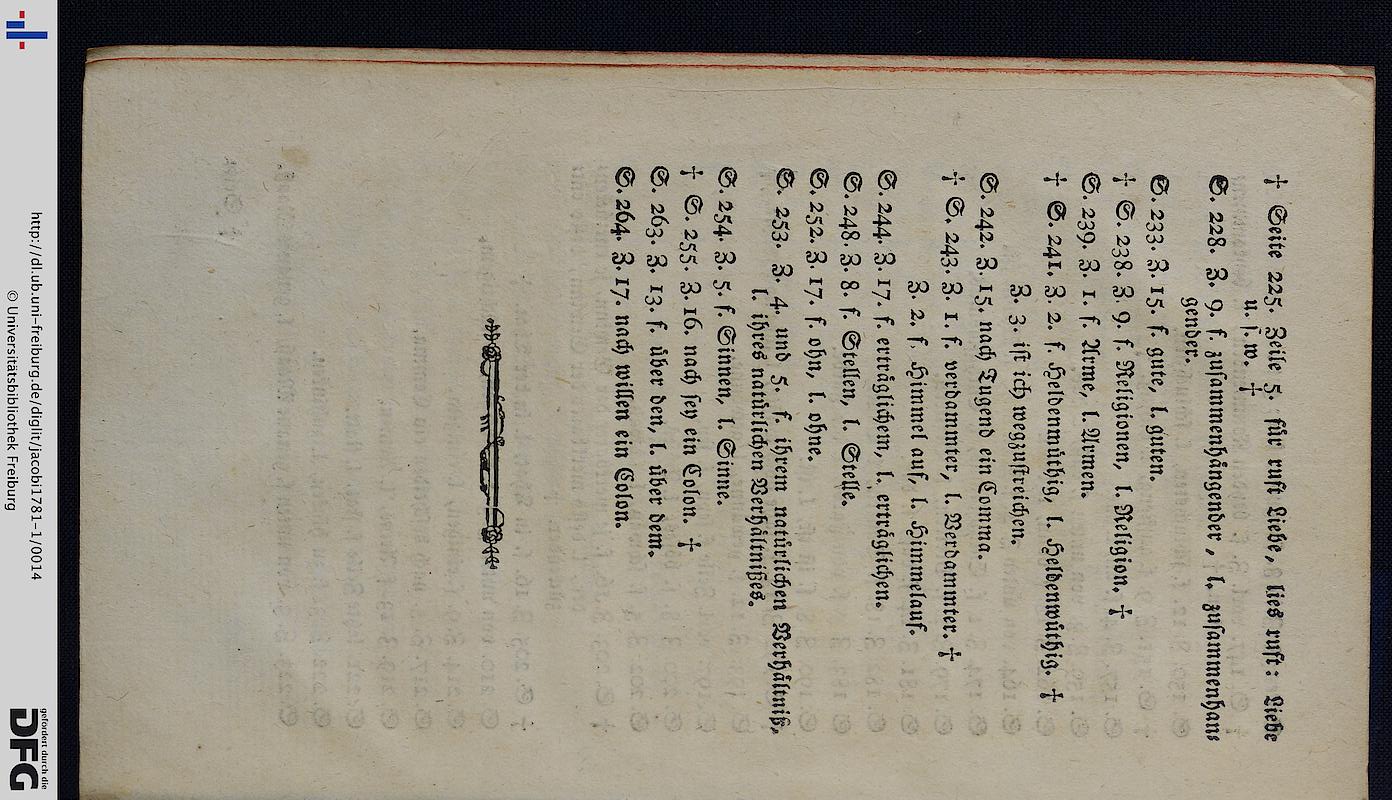 † Seite 225. Zeile 5. für ruft Liebe, lies ruft: Liebe
u. s. w. †
S. 228. Z. 9. f. zusammenhångender, l. zusammenhan=
gender.
S. 233. Z. 15. f. gute, l. guten.
† S. 238. Z. 9. f. Religionen, l. Religion. †
S. 239. Z. 1. f. Arme, l. Armen.
† S. 241. Z. 2. f. Heldenmüthig, l. Heldenwüthig. †
Z. 3. ist ich wegzustreichen.
S. 242. Z. 15. nach Tugend ein Comma.
† S. 243. Z. 1. f. verdammter, l. Verdammter. †
Z. 2. f. Himmel auf, l. Himmelauf.
S. 244. Z. 17. f. erträglichem, l. erträglichen.
S. 248. Z. 8. f. Stellen, l. Stelle.
S. 252. Z. 17. f. ohn, l. ohne.
S. 253. Z. 4. und 5. f. ihrem natürlichen Verhältniß,
l. ihres natürlichen Verhältnißes.
S. 254. Z. 5. f. Sinnen, l. Sinne.
† S. 255. Z. 16. nach sey ein Colon. †
S. 263. Z. 13. f. über den, l. über dem.
S. 264. Z. 17. nach willen ein Colon.
http://dl.ub.uni-freiburg.de/diglit/jacobi1781-1/0014
© Universitätsbibliothek Freiburg
gefördert durch die
DFG